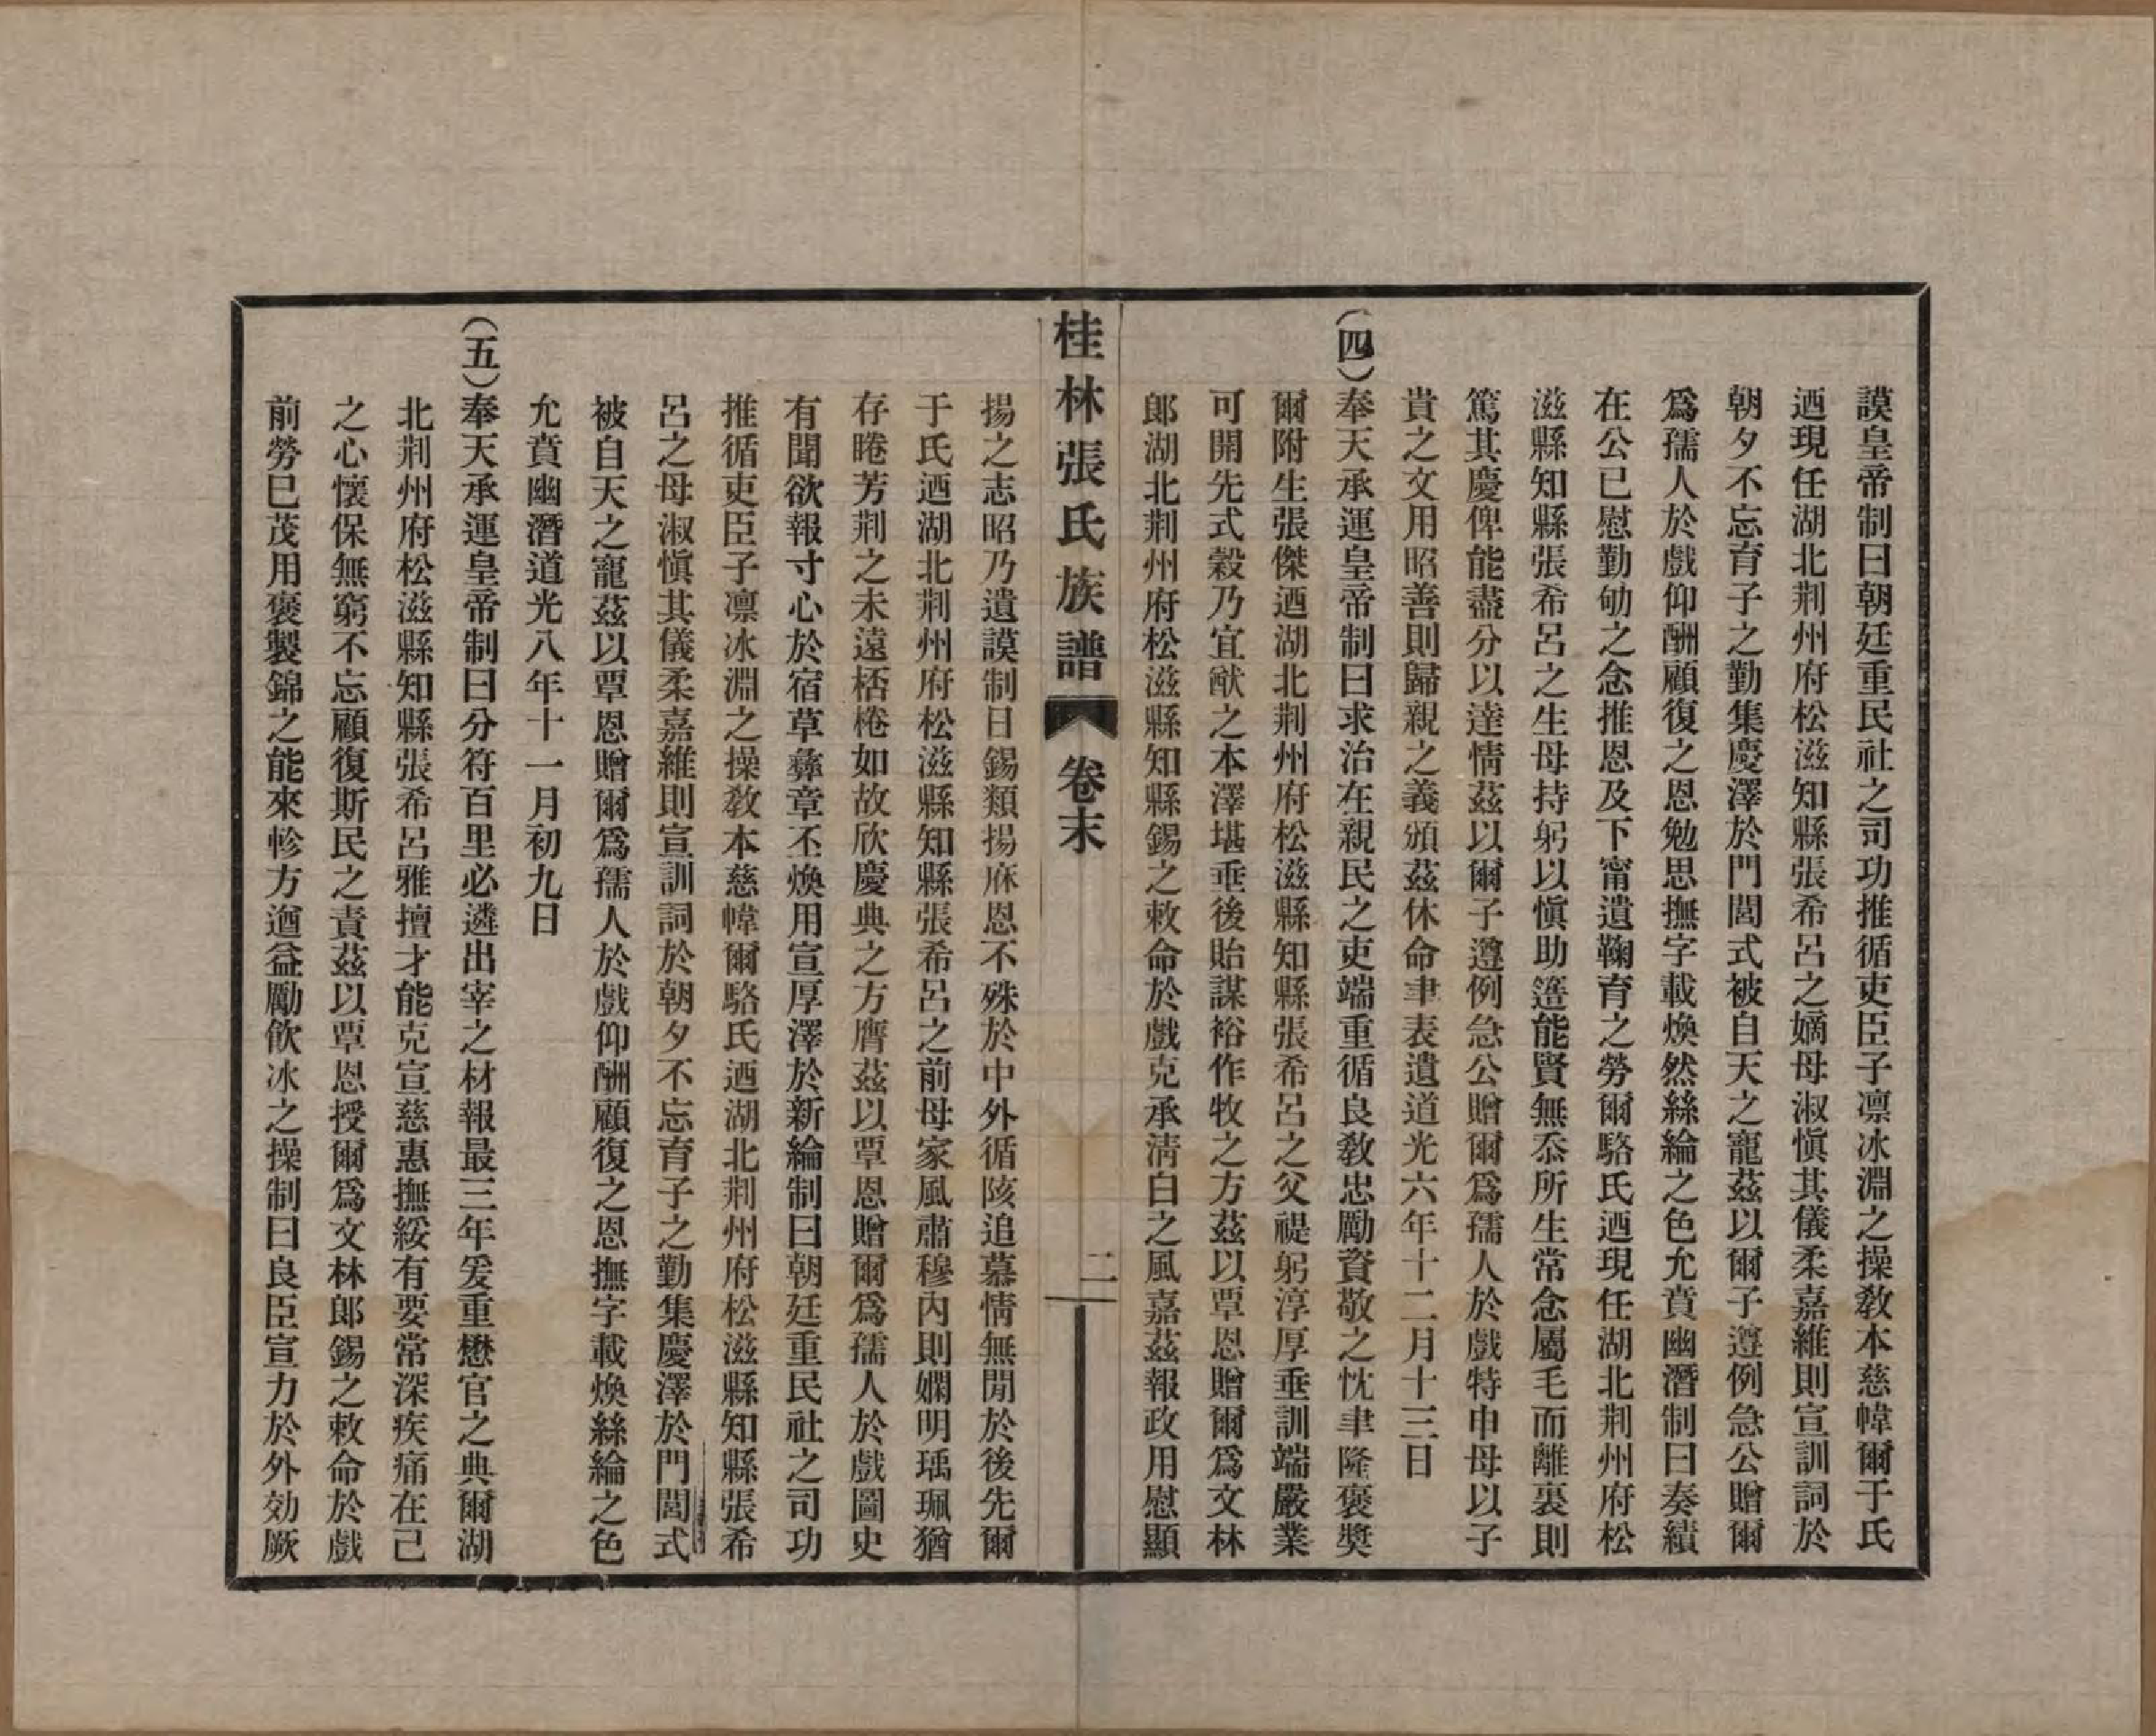 謨皇帝制曰朝廷重民社之司功推循吏臣子凛冰淵之操敎本慈幃爾于氏
迺現任湖北荆州府松滋知縣張希呂之嫡母淑愼其儀柔嘉維則宣訓詞於
朝夕不忘育子之勤集慶澤於門閭式被自天之寵茲以爾子遵例急公贈爾
爲孺人於戲仰酬顧復之恩勉思撫字載煥然絲綸之色允賁幽潛制曰奏績
在公已慰勤劬之念推恩及下甯遺鞠育之勞爾駱氏迺現任湖北荆州府松
滋縣知縣張希呂之生母持躬以愼助簉能賢無忝所生常念屬毛而離裏則
篤其慶俾能盡分以達情茲以爾子遵例急公贈爾爲孺人於戲特申母以子
貴之文用昭善則歸親之義頒茲休命聿表遺道光六年十二月十三日
(四)奉天承運皇帝制曰求治在親民之吏端重循良敎忠勵資敬之忱聿隆褒奬
爾附生張傑迺湖北荆州府松滋縣知縣張希呂之父禔躬淳厚垂訓端嚴業
可開先式穀乃宜猷之本澤堪垂後貽謀裕作牧之方茲以覃恩贈爾爲文林
郞湖北荆州府松滋縣知縣錫之敕命於戲克承淸白之風嘉茲報政用慰顯
桂林張氏族譜 卷末 二
揚之志昭乃遺謨制日錫類揚庥恩不殊於中外循陔追慕情無閒於後先爾
于氏迺湖北荆州府松滋縣知縣張希呂之前母家風肅穆內則嫻明瑀珮猶
存睠芳荆之未遠桮棬如故欣慶典之方膺茲以覃恩贈爾爲孺人於戲圖史
有聞欲報寸心於宿草彝章丕煥用宣厚澤於新綸制曰朝廷重民社之司功
推循吏臣子凛冰淵之操敎本慈幃爾駱氏迺湖北荆州府松滋縣知縣張希
呂之母淑愼其儀柔嘉維則宣訓詞於朝夕不忘育子之勤集慶澤於門閭式
被自天之寵茲以覃恩贈爾爲孺人於戲仰酬顧復之恩撫字載煥絲綸之色
允賁幽潛道光八年十一月初九日
(五)奉天承運皇帝制曰分符百里必遴出宰之材報最三年爰重懋官之典爾湖
北荆州府松滋縣知縣張希呂雅擅才能克宣慈惠撫綏有要常深疾痛在己
之心懷保無窮不忘顧復斯民之責茲以覃恩授爾爲文林郞錫之敕命於戲
前勞巳茂用褒製錦之能來軫方遒益勵飮冰之操制曰良臣宣力於外効厥